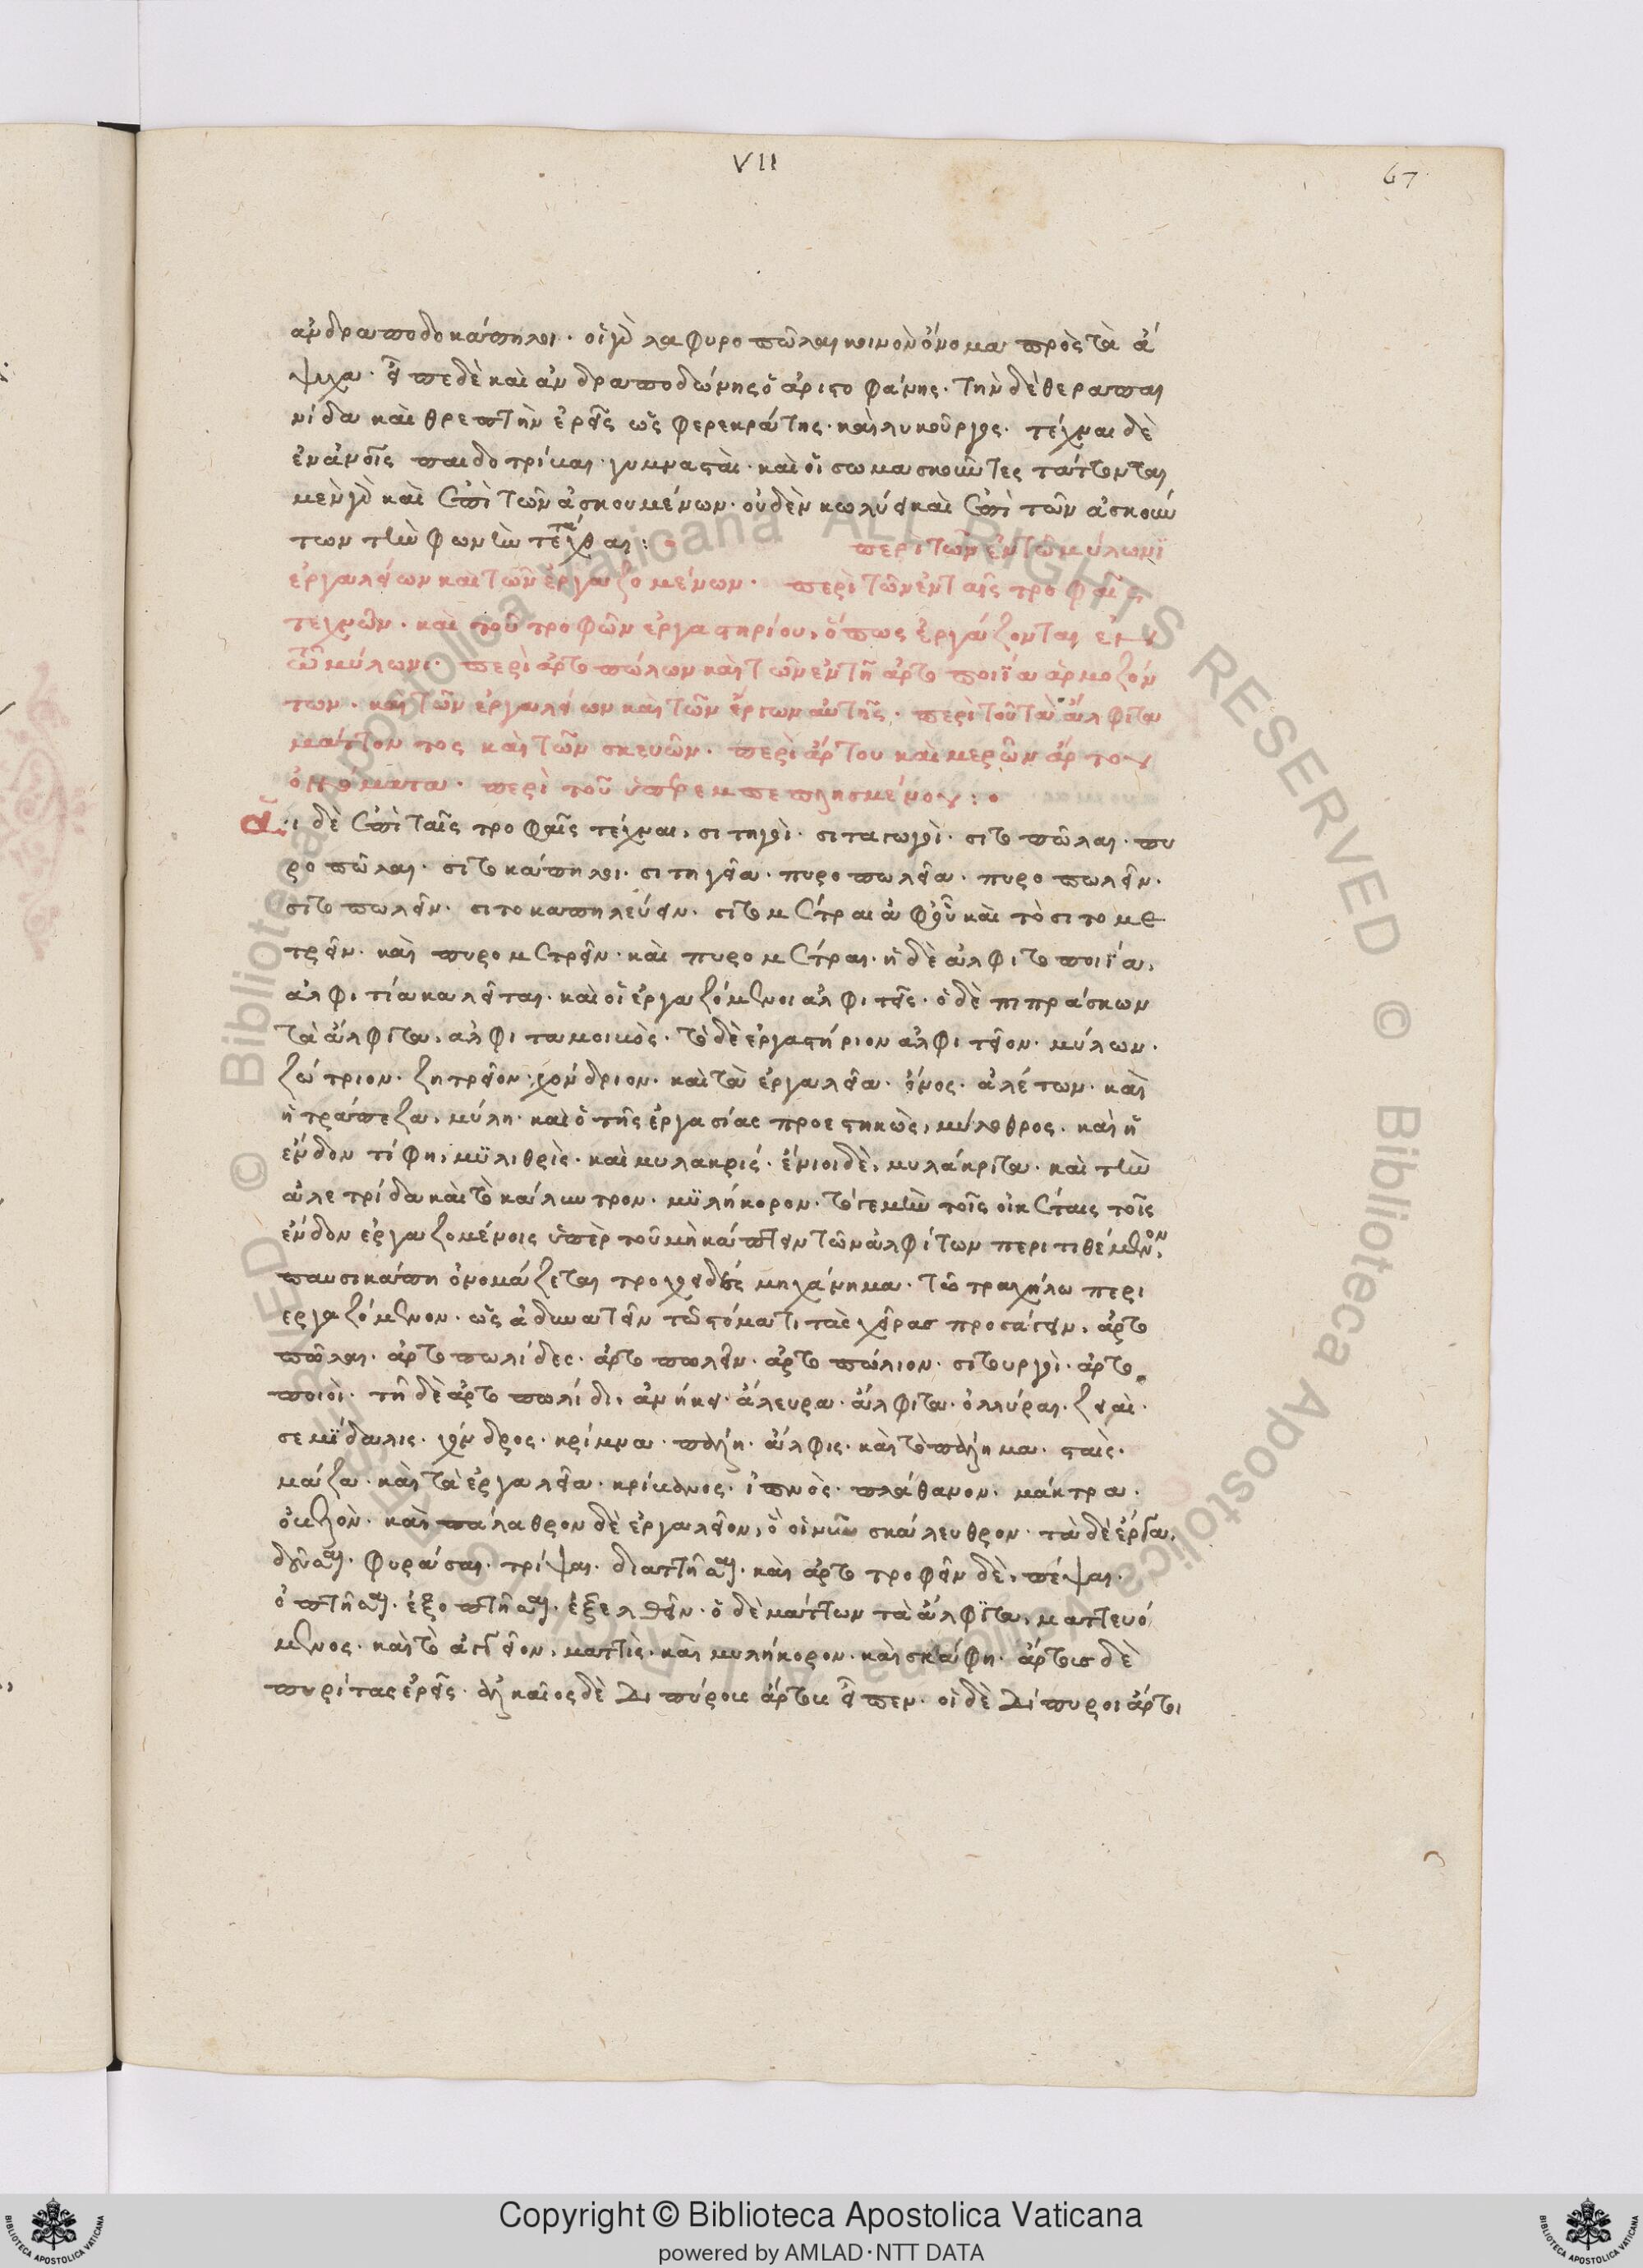 VII
67
ἀνδραποδοκάπηλοι· οἱ γὰρ λαφυροπῶλαι κοινὸν ὄνομα πρὸς τὰ ἄ
ψυχα· εἶπε δὲ καὶ ἀνδραποδώνης ὁ ἀριστοφάνης· τὴν δὲ θεραπαι
νίδα καὶ θρεπτὴν ἐρεῖς ὡς φερεκράτης· καὶ λυκοῦργος· τέχναι δὲ
παιδοτρίβαι· γυμνασταὶ· καὶ οἱ σωμασκοῦντες τάττονται
μὲν γὰρ καὶ ἐπὶ τῶν ἀσκουμένων· οὐδὲν κωλύει καὶ ἐπὶ τῶν ἀσκούν
των τὴν φωνὴν τετάχθαι: περὶ τῶν ἐν τῶ μύλωνϊ
ἐργαλείων καὶ τῶν ἐργαζομένων· περὶ τῶν ἐν ταῖς τροφαῖς
τεχνῶν· καὶ τοῦ τροφῶν ἐργαστηρίου, ὅπως ἐργάζονται ἐν
τῶ μύλωνι· περὶ ἀρτοπώλων καὶ τῶν ἐν τῆ ἀρτοποιΐα ἁρμοζόν
των· καὶ τῶν ἐργαλείων καὶ τῶν ἔργων αὐτῆς· περὶ τοῦ τὰ ἄλφιτα
μάττοντος καὶ τῶν σκευῶν· περὶ ἄρτου καὶ μερῶν ἄρτου
ὀνόματα· περὶ τοῦ ὑπερεμπεπλησμένου:
αἱ δὲ ἐπὶ ταῖς τροφαῖς τέχναι, σιτηγοὶ· σιταγωγοὶ· σιτοπῶλαι· πυ
ροπῶλαι· σιτοκάπηλοι· σιτηγεῖα· πυροπωλεῖα· πυροπωλεῖν·
σιτοπωλεῖν· σιτοκαπηλεύειν· σιτομέτραι ἀφ' οὗ καὶ τὸ σιτομε
τρεῖν· καὶ πυρομετρεῖν· καὶ πυρομέτραι· ἡ δὲ ἀλφιτοποιΐα,
ἀλφιτία καλεῖται· καὶ οἱ ἐργαζόμενοι ἀλφιτεῖς· ὁ δὲ πιπράσκων
τὰ ἄλφιτα, ἀλφιταμοιβὸς· τὸ δὲ ἐργαστήριον ἀλφιτεῖον· μύλων·
ζώτριον· ζητρεῖον· χόνδριον· καὶ τὰ ἐργαλεῖα· ὄνος· ἀλέτων· καὶ
ἡ τράπεζα, μύλη· καὶ ὁ τῆς ἐργασίας προεστηκὼς, μύλωθρος· καὶ ἡ
ἔνδον τίφη, μϋλιθρὶς· καὶ μυλακρίς· ἔνιοι δὲ, μυλάκριτα· καὶ τὴν
ἀλετρίδα καὶ τὸ κάλυντρον· μϋλήκορον· τό γε μὴν τοῖς οἰκέταις τοῖς
ἔνδον ἐργαζομένοις ὑπὲρ τοῦ μὴ κάπτειν τῶν ἀλφίτων περιτιθέμενον,
παυσικάπη ὀνομάζεται τροχοειδές μηχάνημα· τῶ τραχήλω περι
εργαζόμενον· ὡς ἀδυνατεῖν τῶ στόματι τὰς χεῖρας προσάγειν, ἀρτο
πῶλαι· ἀρτοπωλίδες· ἀρτοπωλεῖν· ἀρτοπώλιον· σιτουργοὶ· ἀρτο
ποιοὶ· τῆ δὲ ἀρτοπωλίδι, ἀνήκει· ἄλευρα· ἄλφιτα· ὀλλύραι· ζειαὶ·
σεμίδαλις· χόνδρος· κρίμνα· πάλη· ἄλφις· καὶ τὸ πάλημα· σταὶς·
μάζα· καὶ τὰ ἐργαλεῖα· κρίβανος· ἰπνὸς· πλάθανον· μάκτρα·
ὀβελὸν· καὶ σπάλαθρον δὲ ἐργαλεῖον, ὃ οἱ νῦν σκάλευθρον· τὰ δὲ ἔργα,
δεῦσαι· φυράσαι· τρίψαι· διαττῆσαι· καὶ ἀρτοτροφεῖν δὲ, πέψαι·
ὀπτῆσαι· ἐξοπτῆσαι· ἐξελθεῖν· ὁ δὲ μάττων τὰ ἄλφϊτα, ματτευό
μενος· καὶ τὸ ἀγγεῖον, ματτὶς· καὶ μυλήκορον· καὶ σκάφη· ἄρτους δὲ
πυρίτας ἐρεῖς· ἀλκαῖος δὲ διπύρους ἄρτους εἶπεν· οἱ δὲ δίπυροι ἄρτοι
© Biblioteca Apostolica Vaticana ALL RIGHTS RESERVED
Copyright © Biblioteca Apostolica Vaticana
powered by AMLAD·NTT DATA
BIBLIOTECA APOSTOLICA VATICANA
BIBLIOTECA APOSTOLICA VATICANA